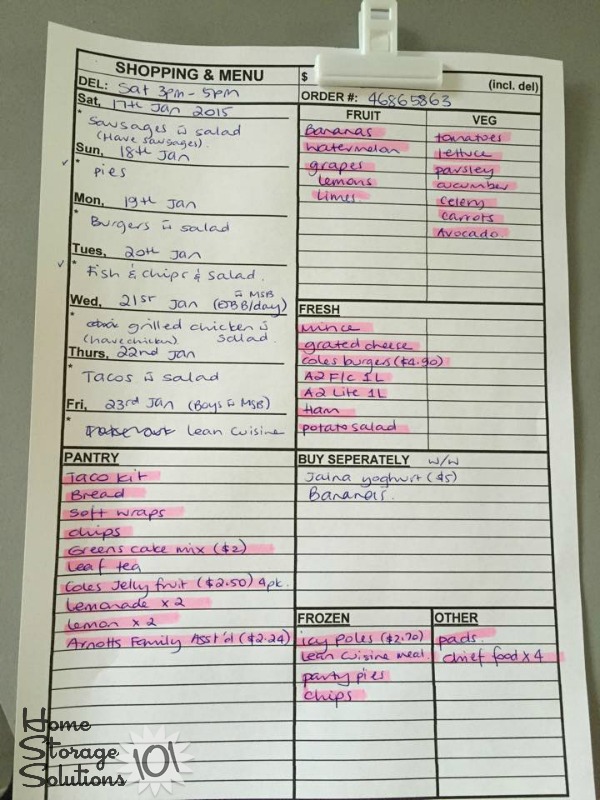 SHOPPING & MENU
$ (incl. del)
DEL: Sat 3pm - 5pm
ORDER #: 46865863
Sat, 17th Jan 2015
* Sausages w̄ salad
(Have sausages).
Sun, 18th Jan
✓ * pies
Mon, 19th Jan
* Burgers w̄ salad
Tues, 20th Jan
✓ * Fish & chips & salad.
w̄ MSB
Wed, 21st Jan (OBB/day)
* grilled chicken w̄
(have chicken) salad.
Thurs, 22nd Jan
* Tacos w̄ salad
Fri, 23rd Jan (Boys w̄ MSB)
* Lean Cuisine
FRUIT
Bananas
watermelon
grapes
lemons
limes
VEG
tomatoes
lettuce
parsley
cucumber
Celery
carrots
Avocado.
FRESH
mince
grated cheese
coles burgers ($4.90)
A2 F/c 1L
A2 Lite 1L
Ham
potato salad
PANTRY
Taco kit
Bread
Soft wraps
chips
Greens cake mix ($2)
Leaf tea
Coles Jelly fruit ($2.50) 4pk.
Lemonade x 2
lemon x 2
Arnotts Family Asst'd ($2.24)
BUY SEPERATELY w/w
Jalna yoghurt ($5)
Bananas.
FROZEN
icy poles ($2.70)
Lean Cuisine meal.
party pies
chips
OTHER
pads.
chief food x 4
Home
Storage
Solutions 101